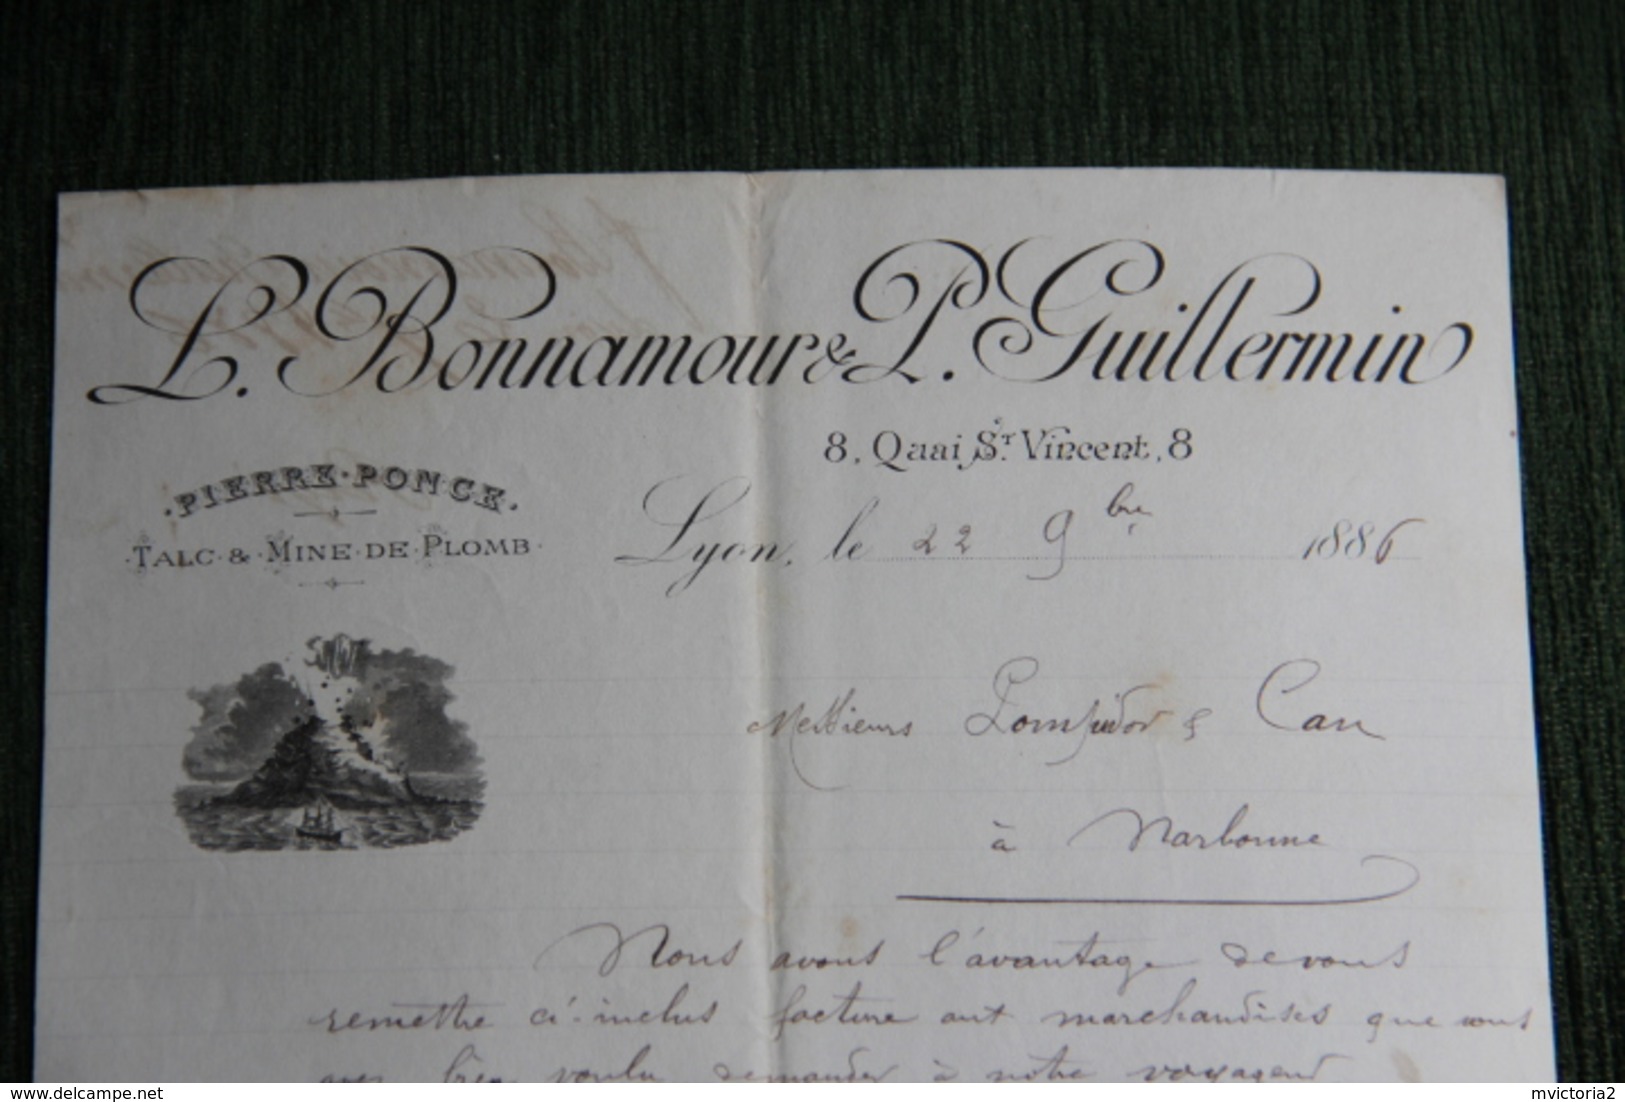 L. Bonnamour & P. Guillermin
8, Quai St. Vincent, 8
·PIERRE·PONCE·
·TALC·&·MINE·DE·PLOMB·
Lyon, le 22 9bre 1886
Messieurs Pompidor & Can
à Narbonne
Nous avons l'avantage de vous
remettre ci-inclus facture aut marchandises que vous
avez bien voulu demander à notre voyageur
delcampe.net
mvictoria2